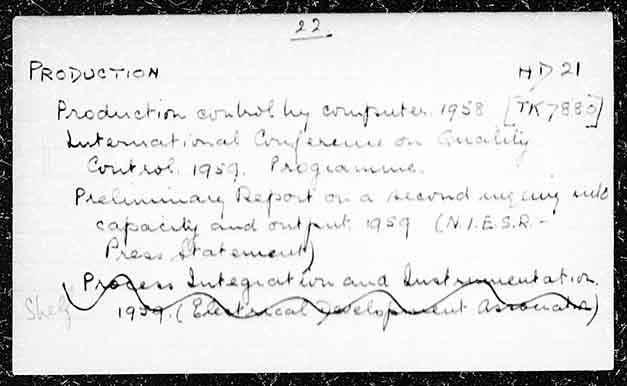 22.
PRODUCTION HD 21
Production control by computer. 1958 [TK7880]
International Conference on Quality
Control. 1959. Programme.
Preliminary Report on a second inquiry into
capacity and output. 1959 (N.I.E.S.R. -
Press Statement)
Process Integration and Instrumentation.
Shelf 1959. (Electrical Development Association)